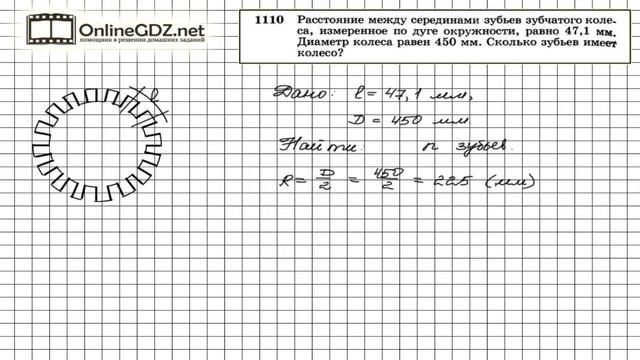 OnlineGDZ.net
помощник в решении домашних заданий
1110 Расстояние между серединами зубьев зубчатого коле-
са, измеренное по дуге окружности, равно 47,1 мм.
Диаметр колеса равен 450 мм. Сколько зубьев имеет
колесо?
l
Дано: l = 47,1 мм,
D = 450 мм.
Найти: n зубьев.
R = D/2 = 450/2 = 225 (мм)